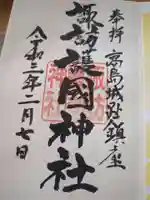 奉拝 高島城跡鎮座
諏訪護國神社
令和三年二月七日